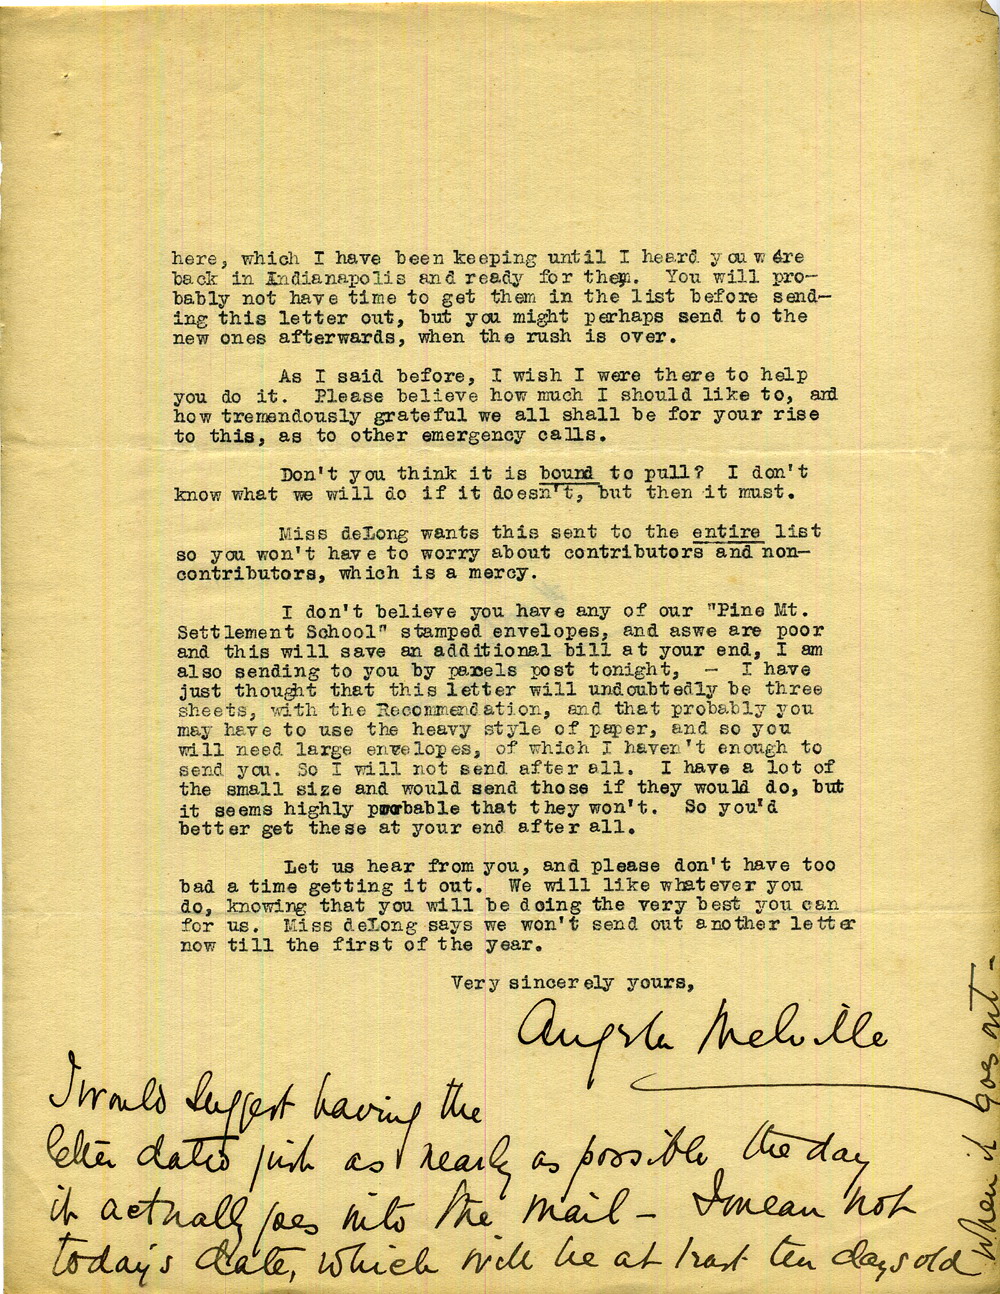 here, which I have been keeping until I heard you were
back in Indianapolis and ready for them.  You will pro-
bably not have time to get them in the list before send-
ing this letter out, but you might perhaps send to the
new ones afterwards, when the rush is over.
As I said before, I wish I were there to help
you do it.  Please believe how much I should like to, and
how tremendously grateful we all shall be for your rise
to this, as to other emergency calls.
Don't you think it is bound to pull?  I don't
know what we will do if it doesn't, but then it must.
Miss deLong wants this sent to the entire list
so you won't have to worry about contributors and non-
contributors, which is a mercy.
I don't believe you have any of our "Pine Mt.
Settlement School" stamped envelopes, and aswe are poor
and this will save an additional bill at your end, I am
also sending to you by parcels post tonight, - I have
just thought that this letter will undoubtedly be three
sheets, with the Recommendation, and that probably you
may have to use the heavy style of paper, and so you
will need large envelopes, of which I haven't enough to
send you. So I will not send after all.  I have a lot of
the small size and would send those if they would do, but
it seems highly probable that they won't.  So you'd
better get these at your end after all.
Let us hear from you, and please don't have too
bad a time getting it out.  We will like whatever you
do, knowing that you will be doing the very best you can
for us.  Miss deLong says we won't send out another letter
now till the first of the year.
Very sincerely yours,
Angela Melville
I would suggest having the
letter dated just as nearly as possible the day
it actually goes into the mail - I mean not
today's date, which will be at least ten days old
when it goes out -